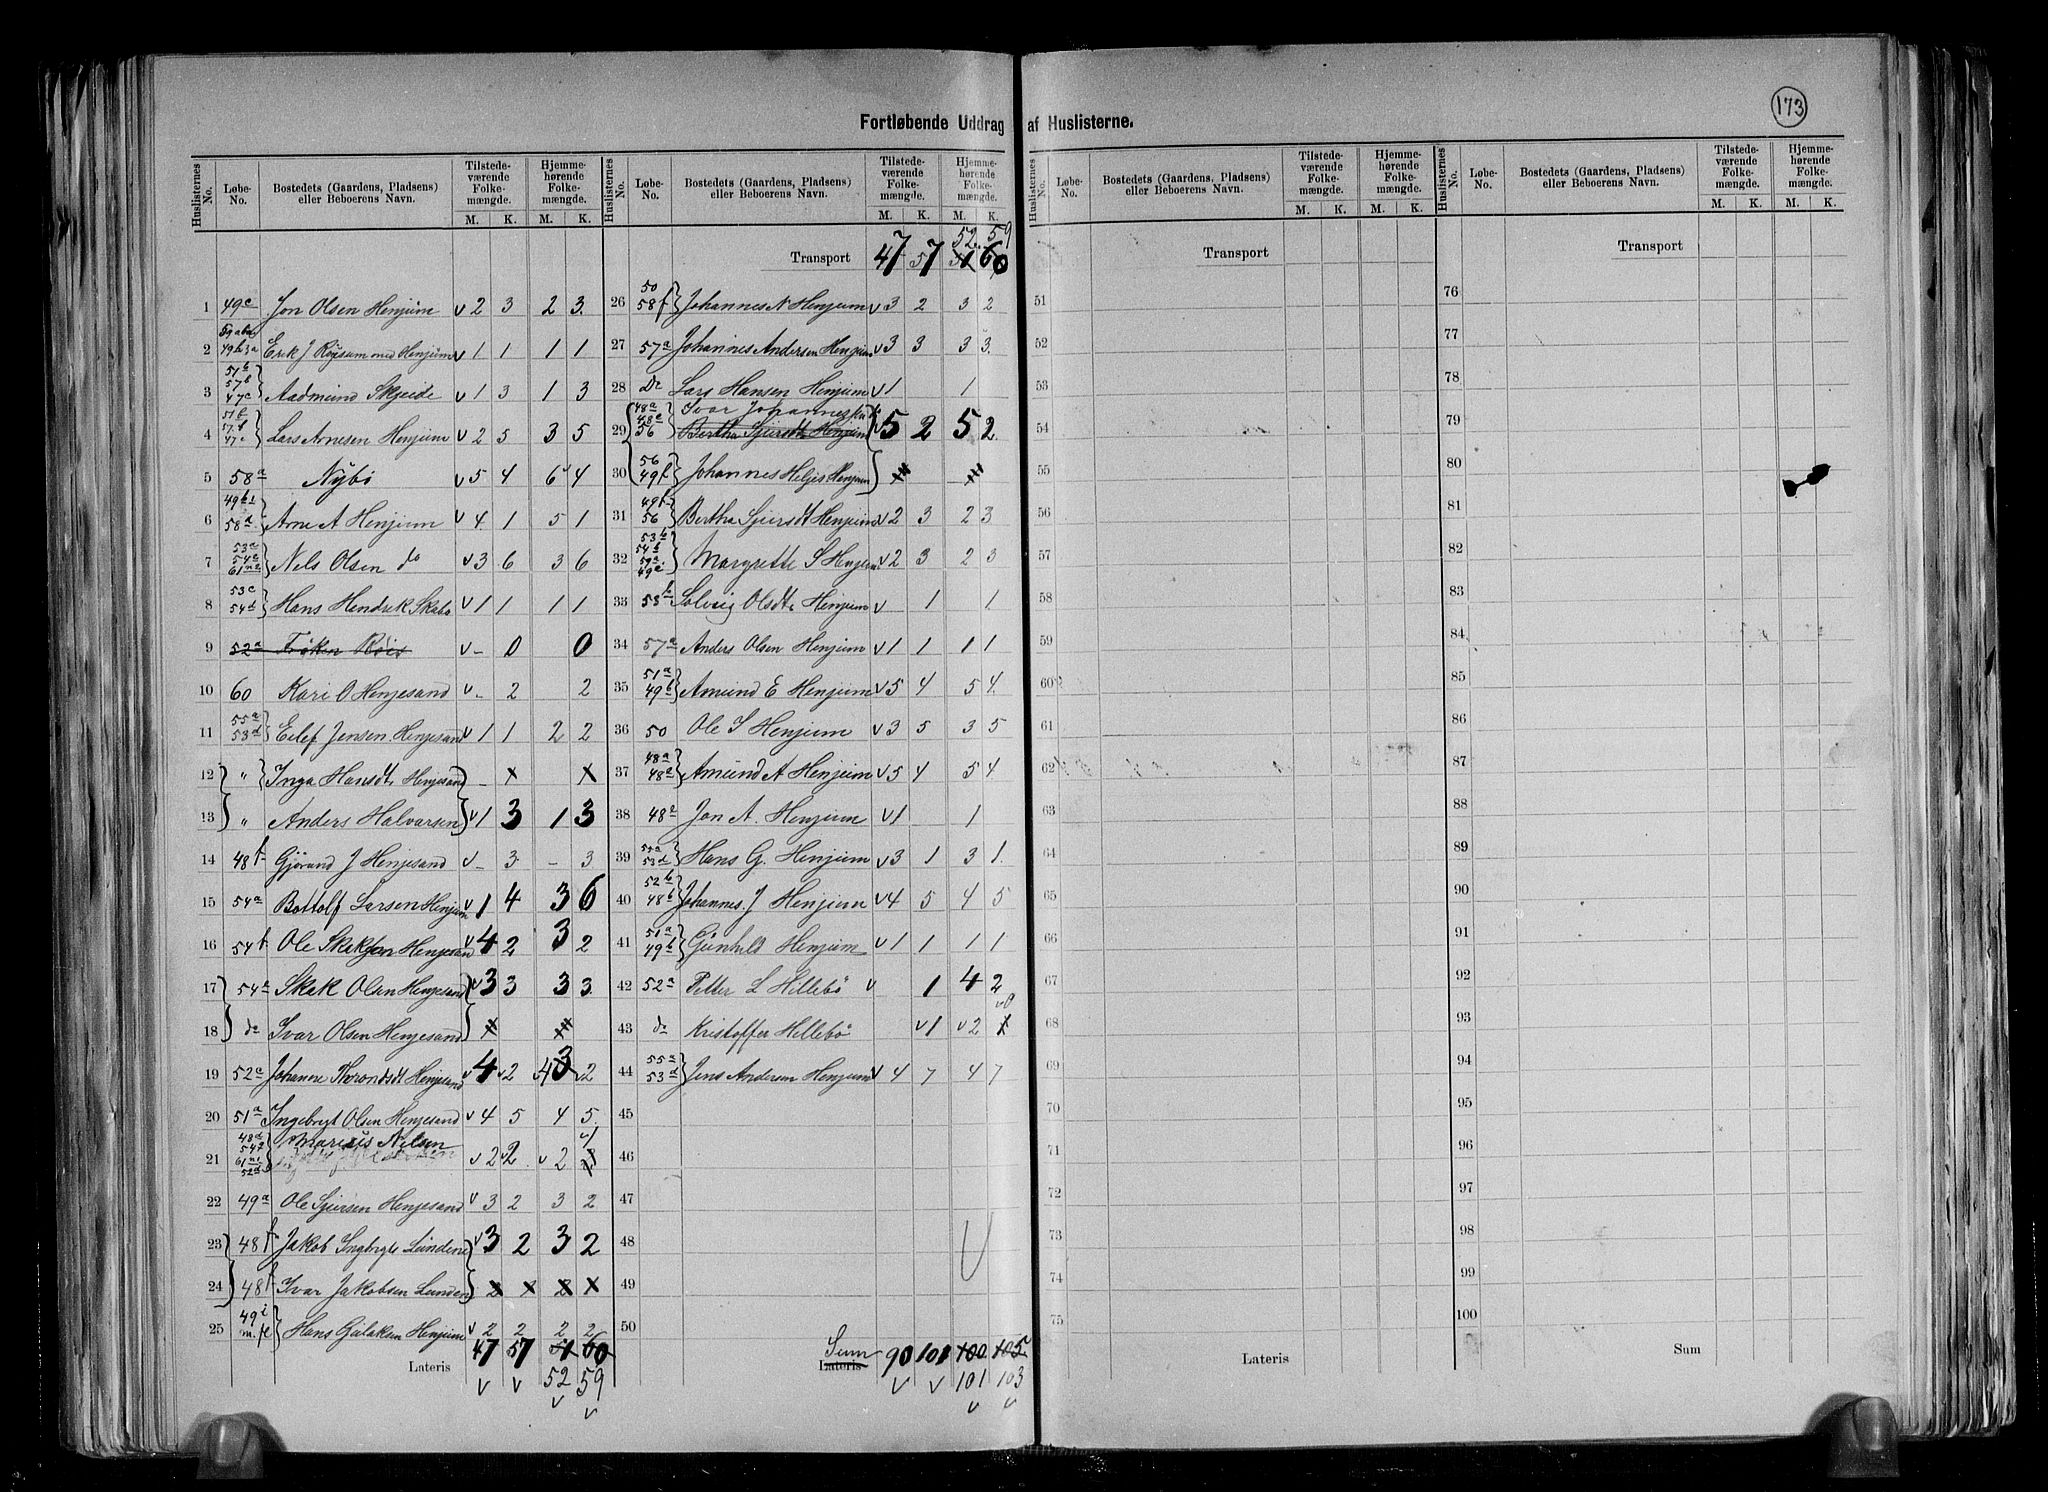 173
Fortløbende Uddrag af Huslisterne.
Huslisternes No. Løbe-No. Bostedets (Gaardens, Pladsens) eller Beboerens Navn. Tilstedeværende Folkemængde. M. K. Hjemmehørende Folkemængde. M. K.
1 49c Jon Olsen Henjum v 2 3 2 3
2 49b 3a Erik J Røysum med Henjum v 1 1 1 1
3 51b 57b 47c Aadmund Skjeide v 1 3 1 3
4 51b 57b 47c Lars Arnesen Henjum v 2 5 3 5
5 58a Nybø v 5 4 6 4
6 49b1 58a Arne A Henjum v 4 1 5 1
7 53a 54c 61 n2 Nels Olsen do v 3 6 3 6
8 53c 54d Hans Hendrik Skabo v 1 1 1 1
9 52a v - 0 0
10 60 Kari O Henjesand v - 2 2
11 55a 53d Eilef Jensen Henjesand v 1 1 2 2
12 " Inga Hansdt Henjesand - x x
13 " Anders Halvarsen v 1 3 1 3
14 48f Gjørund J Henjesand v - 3 - 3
15 54a Bottolf Larsen Henjum v 1 4 3 6
16 54b Ole Henjesand v 4 2 3 2
17 54a Skak Olsen Henjesand v 3 3 3 3
18 do Ivar Olsen Henjesand x x
19 52a Johanne Throndsdt Henjesand v 4 v 2 v 4 3 v 2
20 51a Ingebrigt Olsen Henjesand v 4 5 4 5
21 48d 54d 61 n1 52d Marius Nelsen v 2 v 2 v 2 v 1
22 49a Ole Sjursen Henjesand v 3 2 3 2
23 48f Jakob Ingbrigts Lunden v 3 2 3 2
24 48f Ivar Jakobsen Lunden 2 x 2 x
25 49i m. fl Hans Gulaksen Henjum v 2 2 2 2
Lateris 47 57 51 60
v v 52 v 59 v
Huslisternes No. Løbe-No. Bostedets (Gaardens, Pladsens) eller Beboerens Navn. Tilstedeværende Folkemængde. M. K. Hjemmehørende Folkemængde. M. K.
52 59
Transport 47 57 51 60
26 50 58f Johannes N Henjum v 3 2 3 2
27 57a Johannes Andersen Henjum v 3 3 3 3
28 Do Lars Hansen Henjum v 1 1
29 48a 48e 56 Ivar Johannes
Bertha Sjursdt Henjum v 5 2 5 2
30 56 49f Johannes Heljes Henjum
31 49f 56 Bertha Sjursdt Henjum v 2 3 2 3
32 53b 54b 59a 49e Margrette S Henjum v 2 3 2 3
33 53b Solvig Olsdt Henjum v 1 1
34 57a Anders Olsen Henjum v 1 1 1 1
35 51a 49b Amund E Henjum v 5 4 5 4
36 50 Ole S Henjum v 3 5 3 5
37 48a 48a Amund A Henjum v 5 4 5 4
38 48a Jon A. Henjum v 1 1
39 54a 53d Hans G. Henjum v 3 1 3 1
40 52b 48b Johannes J Henjum v 4 5 4 5
41 51a 49b Gunhild Henjum v 1 1 1 1
42 52a Petter L Hillebö v 1 4 2
43 do Kristoffer Hillebö v 1 v 2 1 v 0
44 55a 53d Jens Andersen Henjum v 4 7 4 7
45
46
47
48
49
50
Sum Lateris 90 101 100 105
v v 101 v 103 v
Huslisternes No. Løbe-No. Bostedets (Gaardens, Pladsens) eller Beboerens Navn. Tilstedeværende Folkemængde. M. K. Hjemmehørende Folkemængde. M. K.
Transport
51
52
53
54
55
56
57
58
59
60
61
62
63
64
65
66
67
68
69
70
71
72
73
74
75
Lateris
Huslisternes No. Løbe-No. Bostedets (Gaardens, Pladsens) eller Beboerens Navn. Tilstedeværende Folkemængde. M. K. Hjemmehørende Folkemængde. M. K.
Transport
76
77
78
79
80
81
82
83
84
85
86
87
88
89
90
91
92
93
94
95
96
97
98
99
100
Sum